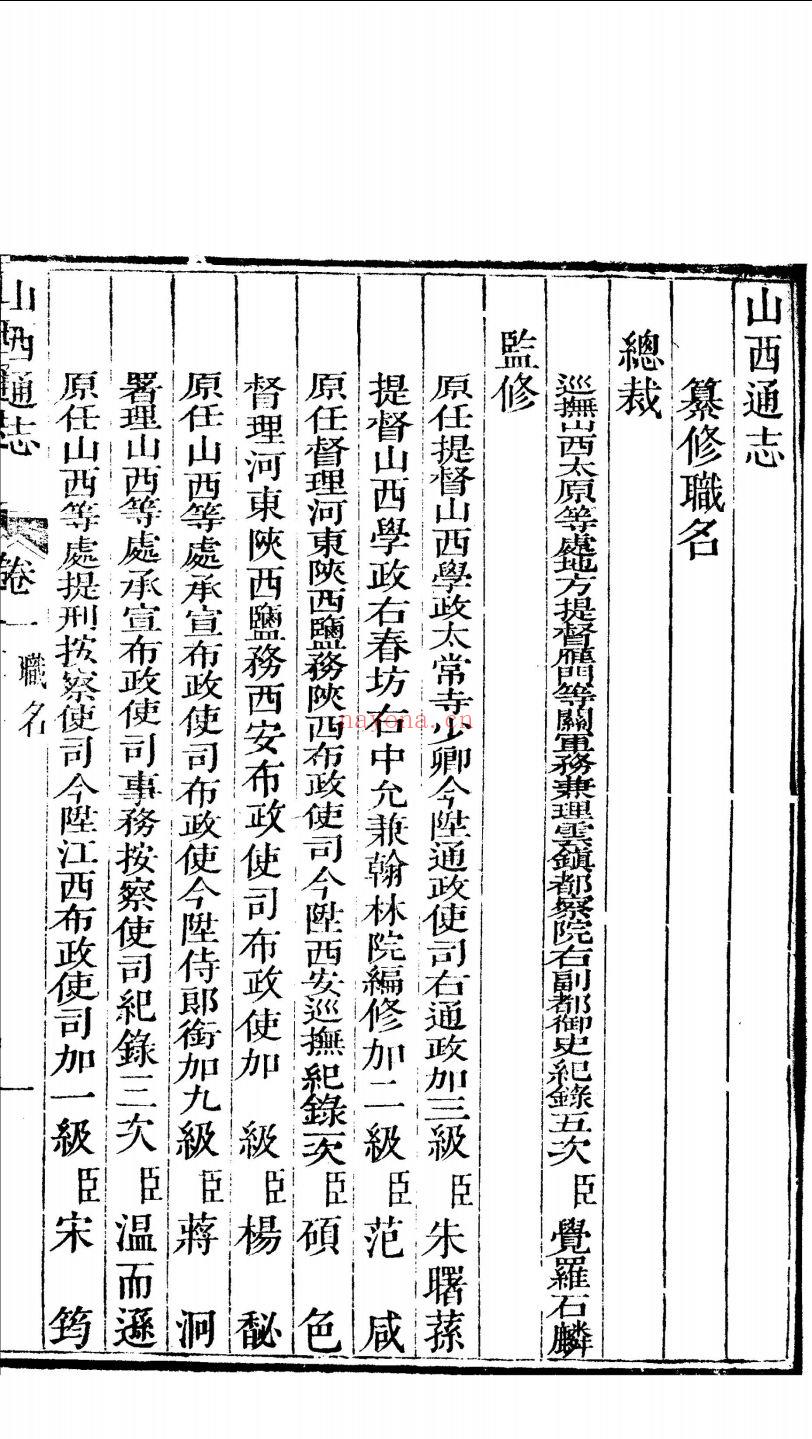 山西通志
纂修職名
總裁
巡撫山西太原等處地方提督雁門等關軍務兼理雲鎮都察院右副都御史紀錄五次臣覺羅石麟
監修
原任提督山西學政太常寺少卿今陞通政使司右通政加三級臣朱曙蓀
提督山西學政右春坊右中允兼翰林院編修加二級臣范咸
原任督理河東陝西鹽務陝西布政使司今陞西安巡撫紀錄一次臣碩色
督理河東陝西鹽務西安布政使司布政使加 級臣楊馝
原任山西等處承宣布政使司布政使今陞侍郎銜加九級臣蔣泂
署理山西等處承宣布政使司事務按察使司紀錄三次臣溫而遜
原任山西等處提刑按察使司今陞江西布政使司加一級臣宋筠
山西通志 卷一 職名 一
nayona.cn